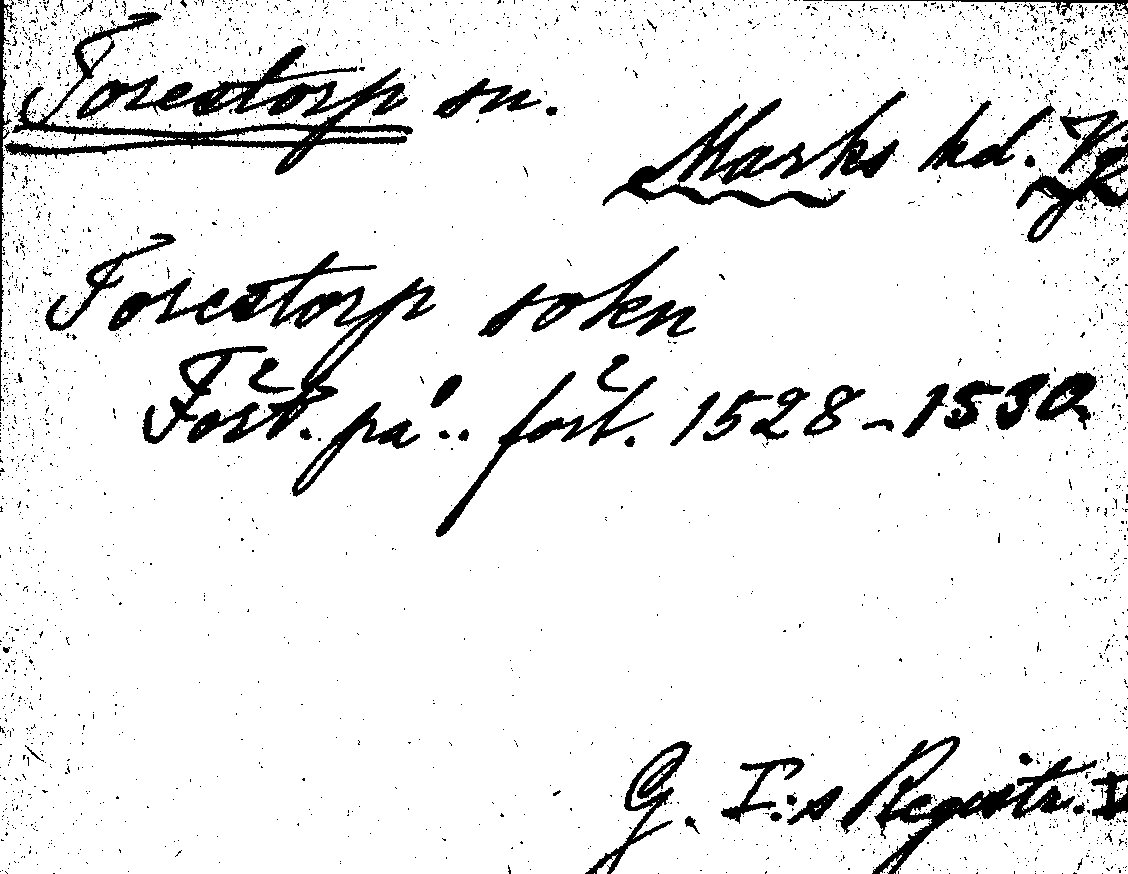 Torestorp sn.
Marks hd. Vg
Torestorp sokn
Fört. på .. fört. 1528-1530
G. I:s Registr.